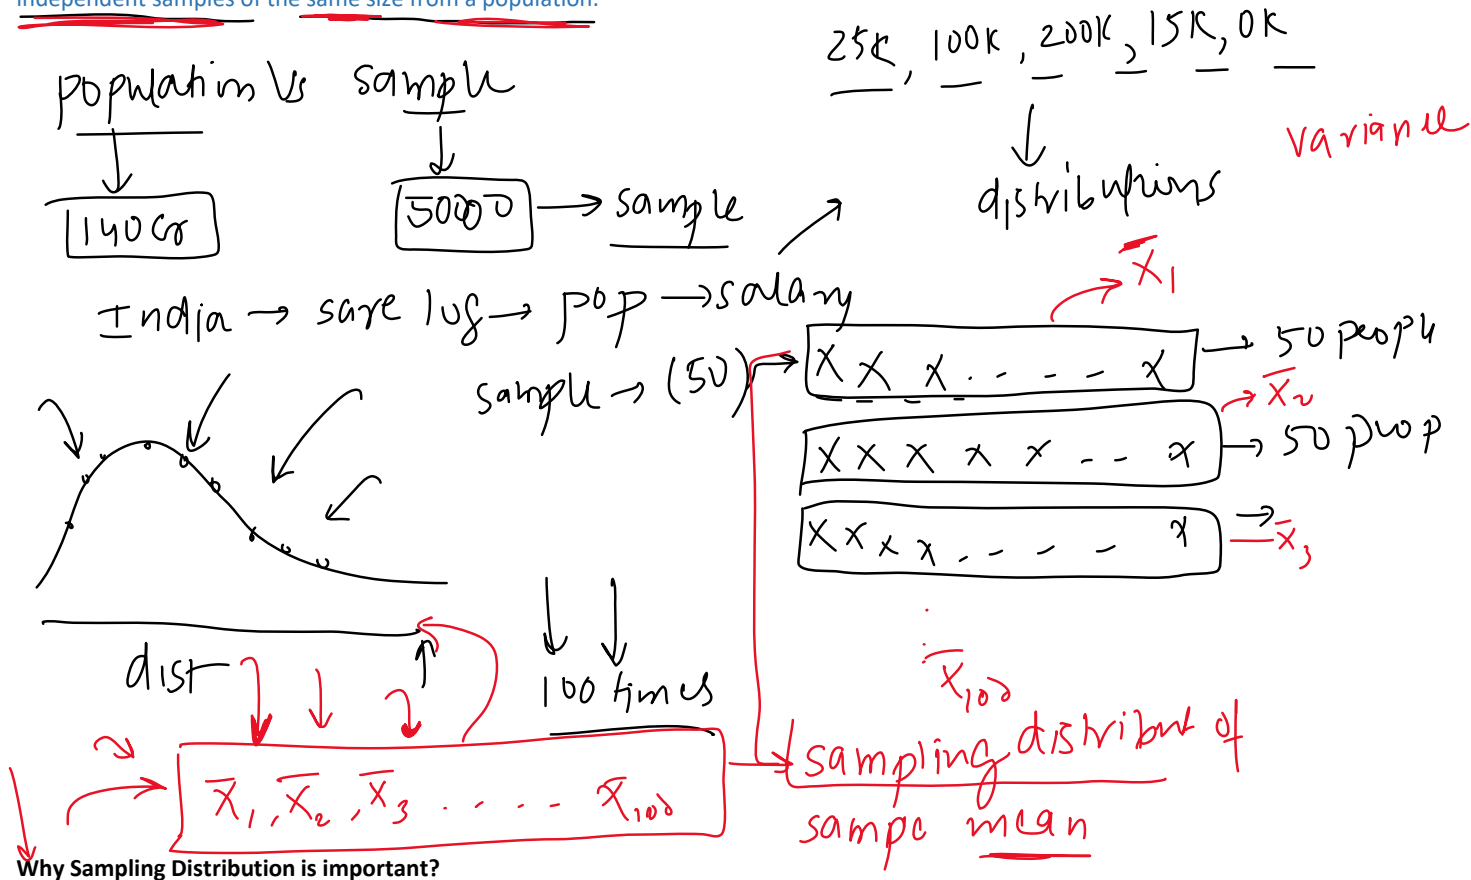 independent samples of the same size from a population.
25K, 100K, 200K, 15K, 0K
population Vs sample
variance
140Cr
50000 → sample
distributions
X̄1
India → → pop → salary
sample → (50)
X X X . - - - X → 50 people
X̄2
X X X X X - - X → 50 peop
X X X X - - - - X → X̄3
dist
100 times
X̄100
X̄1, X̄2, X̄3 . . . - - X̄100
sampling distribut of
sampe mean
Why Sampling Distribution is important?